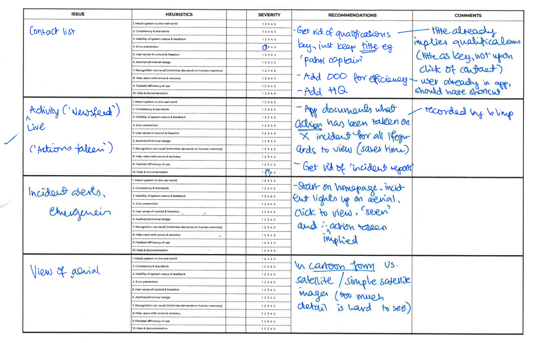 ISSUE
HEURISTICS
SEVERITY
RECOMMENDATIONS
COMMENTS
Contact list
1. Match system to the real world
2. Consistency & standards
3. Visibility of system status & feedback
4. Error prevention
5. User sense of control & freedom
6. Aesthetic/minimal design
7. Recognition not recall (minimise demands on human memory)
8. Help users with errors & recovery
9. Flexible/efficiency of use
10. Help & documentation
1 2 3 4 5
1 2 3 4 5
1 2 3 4 5
1 2 3 4 5
1 2 3 4 5
1 2 3 4 5
1 2 3 4 5
1 2 3 4 5
1 2 3 4 5
1 2 3 4 5
- Get rid of qualifications
key, just keep title eg
'patrol captain'
- Add 000 for efficiency
- Add HQ
title already
implies qualifications
(title as key, not upon
click of contact)
user already in app,
should have shortcut
Activity ('Newsfeed')
Live
('Actions taken')
1. Match system to the real world
2. Consistency & standards
3. Visibility of system status & feedback
4. Error prevention
5. User sense of control & freedom
6. Aesthetic/minimal design
7. Recognition not recall (minimise demands on human memory)
8. Help users with errors & recovery
9. Flexible/efficiency of use
10. Help & documentation
1 2 3 4 5
1 2 3 4 5
1 2 3 4 5
1 2 3 4 5
1 2 3 4 5
1 2 3 4 5
1 2 3 4 5
1 2 3 4 5
1 2 3 4 5
1 2 3 4 5
- App documents what
action has been taken on
X incident for all lifegu-
ards to view (saves time)
- Get rid of 'incident reports'
- recorded by
Incident alerts,
1. Match system to the real world
2. Consistency & standards
3. Visibility of system status & feedback
4. Error prevention
5. User sense of control & freedom
6. Aesthetic/minimal design
7. Recognition not recall (minimise demands on human memory)
8. Help users with errors & recovery
9. Flexible/efficiency of use
10. Help & documentation
1 2 3 4 5
1 2 3 4 5
1 2 3 4 5
1 2 3 4 5
1 2 3 4 5
1 2 3 4 5
1 2 3 4 5
1 2 3 4 5
1 2 3 4 5
1 2 3 4 5
- Start on homepage, incid
ent lights up on aerial,
click to view, 'seen'
and ∴ action
implied
View of aerial
1. Match system to the real world
2. Consistency & standards
3. Visibility of system status & feedback
4. Error prevention
5. User sense of control & freedom
6. Aesthetic/minimal design
7. Recognition not recall (minimise demands on human memory)
8. Help users with errors & recovery
9. Flexible/efficiency of use
10. Help & documentation
1 2 3 4 5
1 2 3 4 5
1 2 3 4 5
1 2 3 4 5
1 2 3 4 5
1 2 3 4 5
1 2 3 4 5
1 2 3 4 5
1 2 3 4 5
1 2 3 4 5
In cartoon form vs.
satellite / simple satellite
images (too much
detail is hard to see)